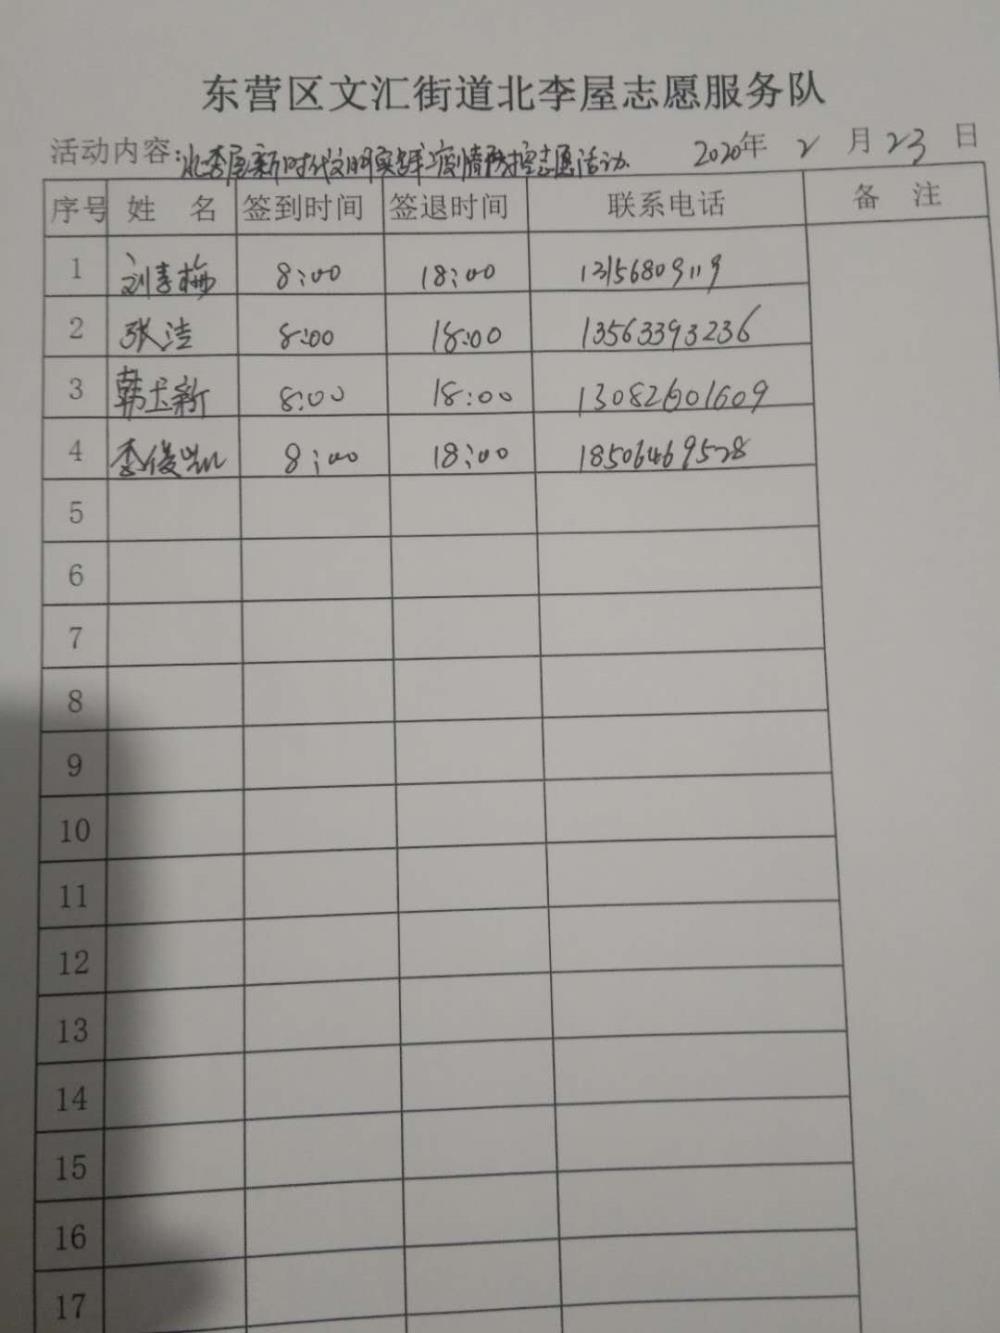 东营区文汇街道北李屋志愿服务队
活动内容:北李屋新时代文明实践疫情防控志愿活动 2020年 2 月 23 日
序号 姓 名 签到时间 签退时间 联系电话 备 注
1 刘李梅 8:00 18:00 13156809119
2 张洁 8:00 18:00 13563393236
3 韩玉新 8:00 18:00 13082601609
4 李俊凯 8:00 18:00 18506469528
5
6
7
8
9
10
11
12
13
14
15
16
17